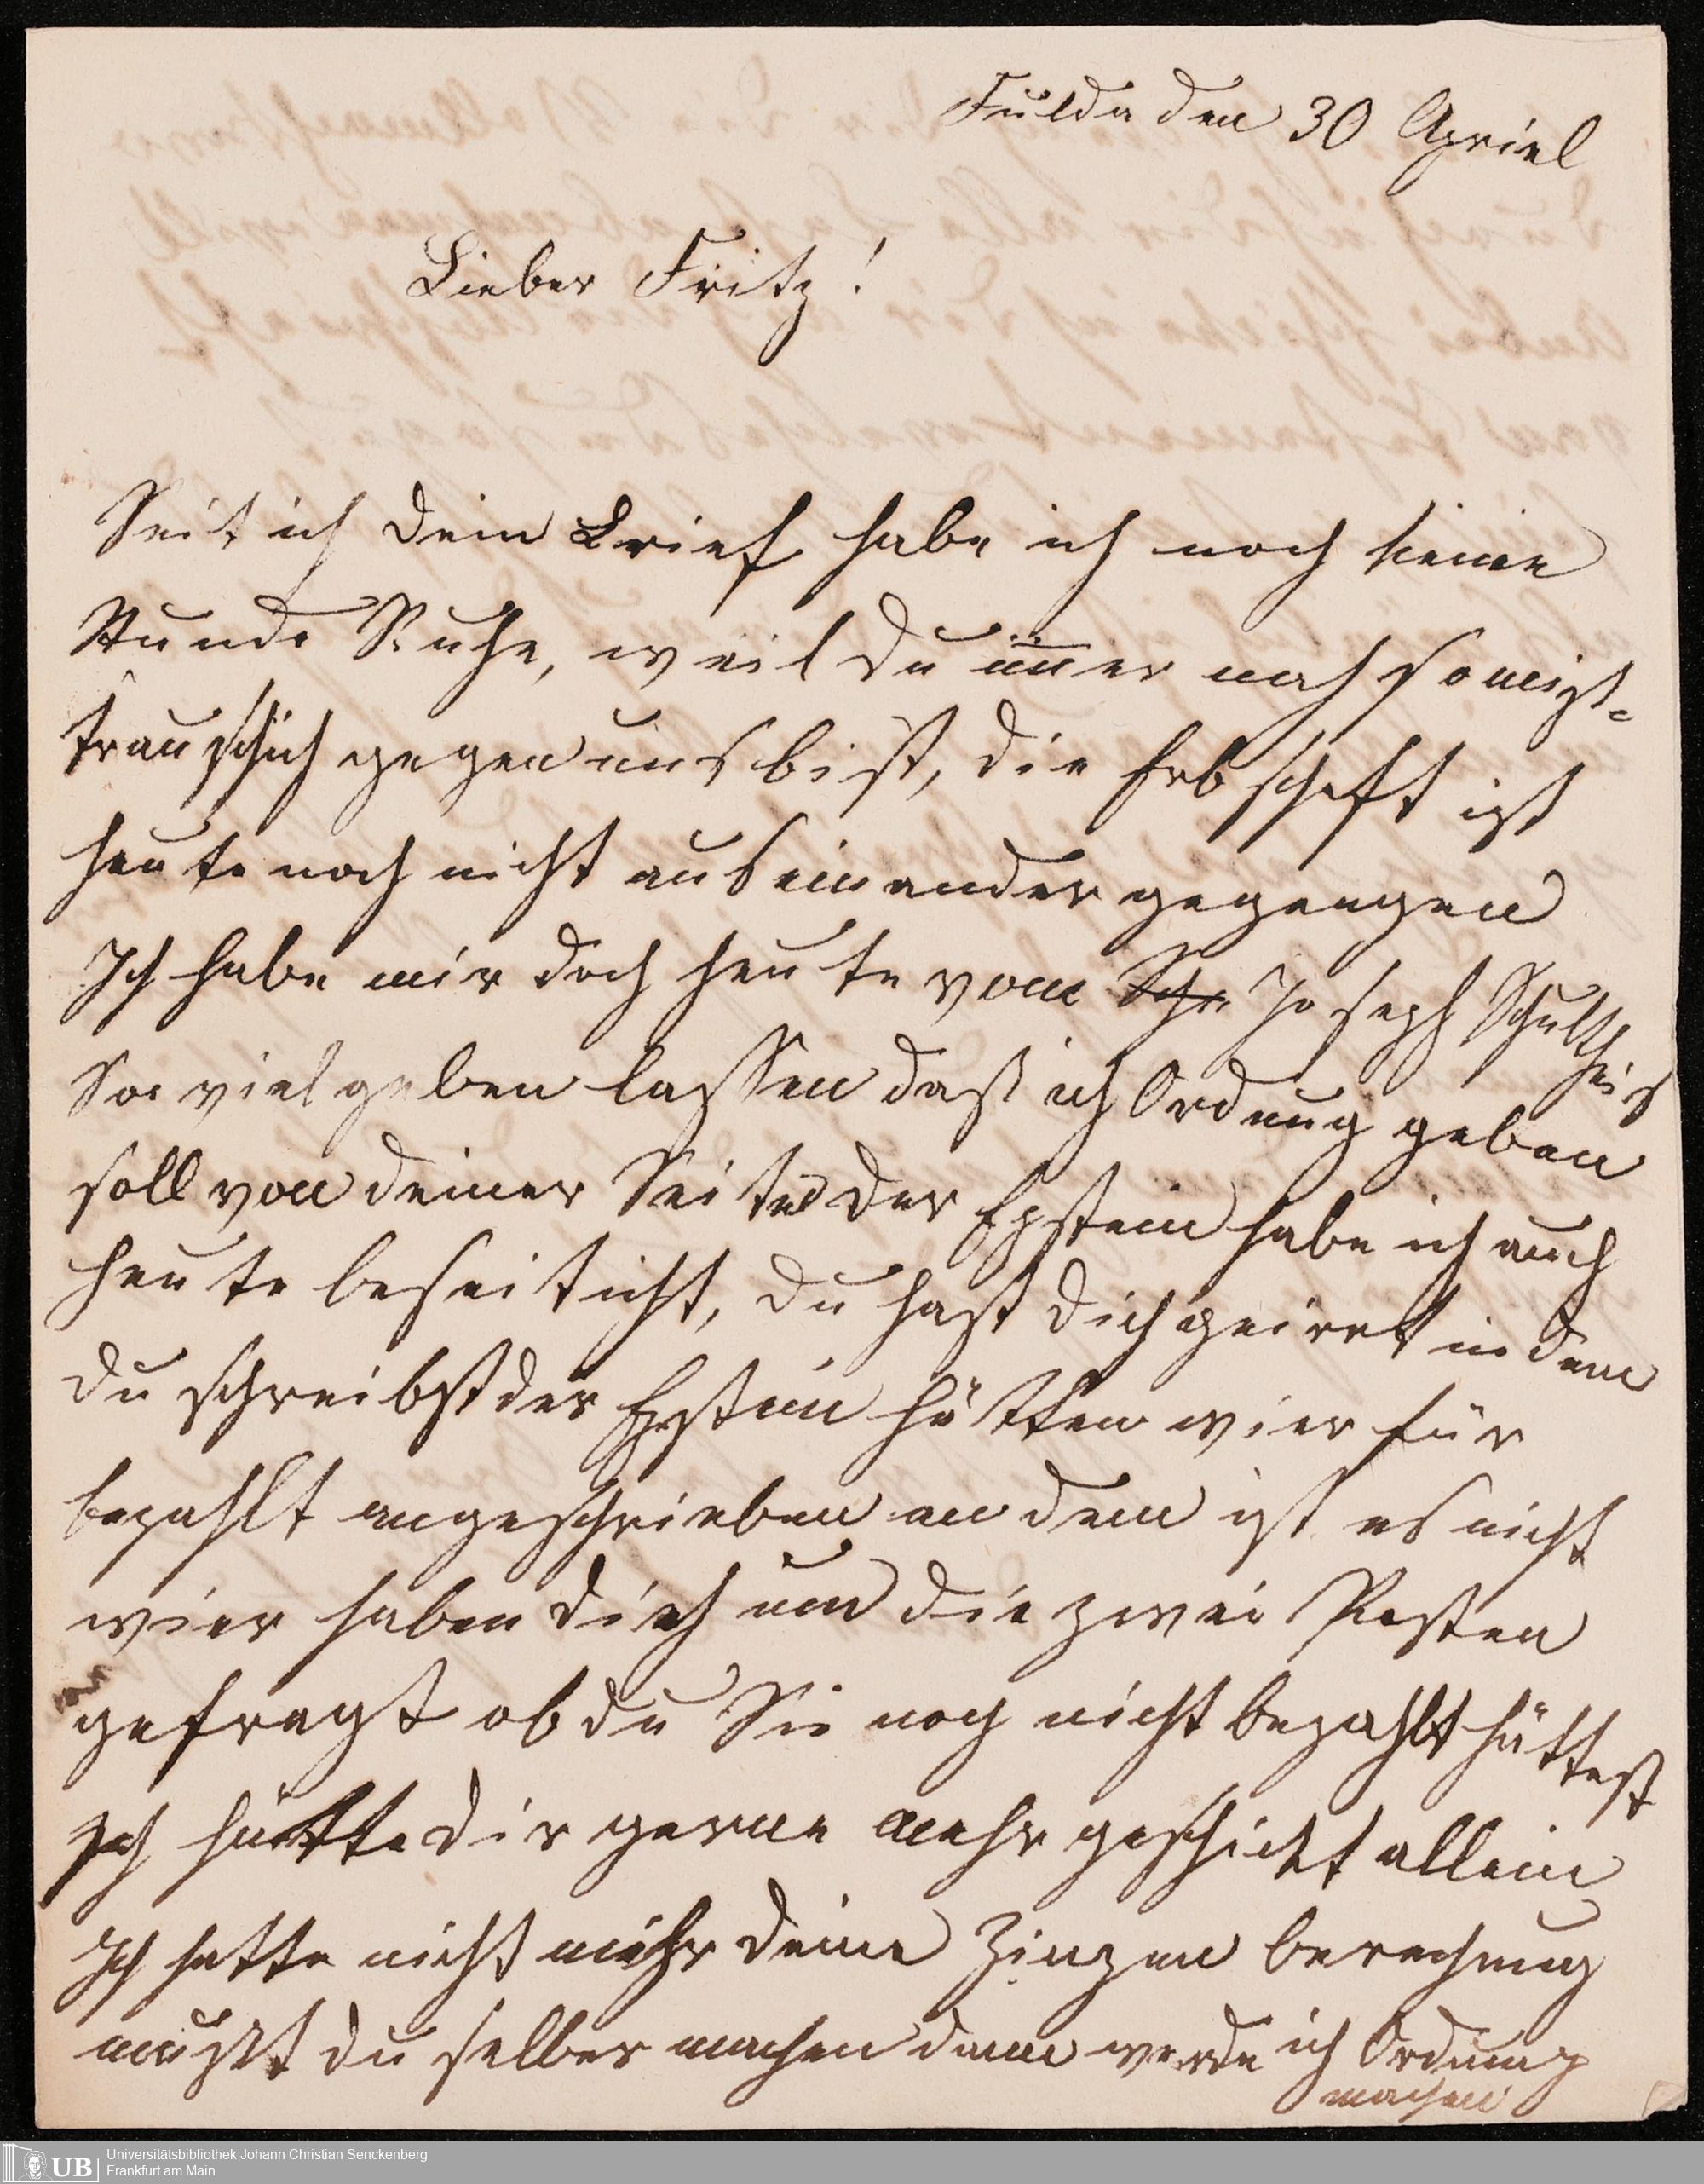 Fulda den 30 Apriel
Lieber Fritz!
Seit ich dein Brief habe ich noch keine
Stunde Ruhe, weil du im̅er noch so mißt-
trauischich gegen uns bist, die Erbschaft ist
heute noch nicht auseinander gegangen
Ich habe mir doch heute vom Joseph Schultheis
So viel geben lassen daß ich Ordnung geben
soll von deiner Seite der Epstein habe ich auch
heute beseiticht, du hast dich geirrt in dem
du schreibst der Epstein hätten wier für
bezahlt angeschrieben an dem ist es nicht
wier haben dich um die zwei Posten
gefragt ob du Sie noch nicht bezahlt hättest
Ich hätte dir gerne mehr geschickt allein
Ich hatte nicht mehr deine Zinzen berechnug
mußt du selber machen dann werde ich Ordnung
machen
UB
Universitätsbibliothek Johann Christian Senckenberg
Frankfurt am Main